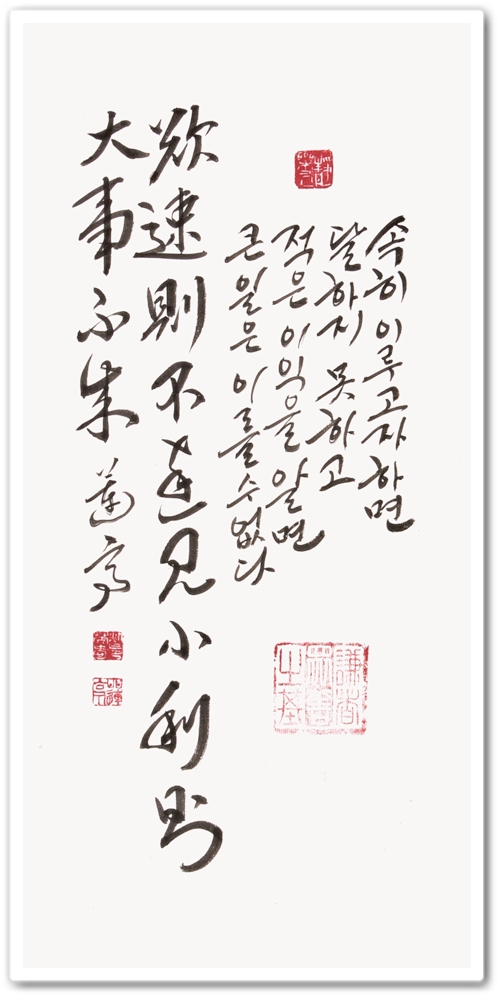 속히 이루고자 하면
달하지 못하고
적은 이익을 알면
큰 일은 이룰 수 없다
欲速則不達見小利則
大事不成 蓮亭
謙者
衆善
之基